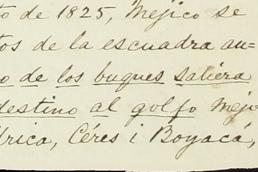 to de 1825, Mejico se
tos de la escuadra au-
o de los buques saliera
destino al golfo Meji-
frica, Céres i Boyacá,